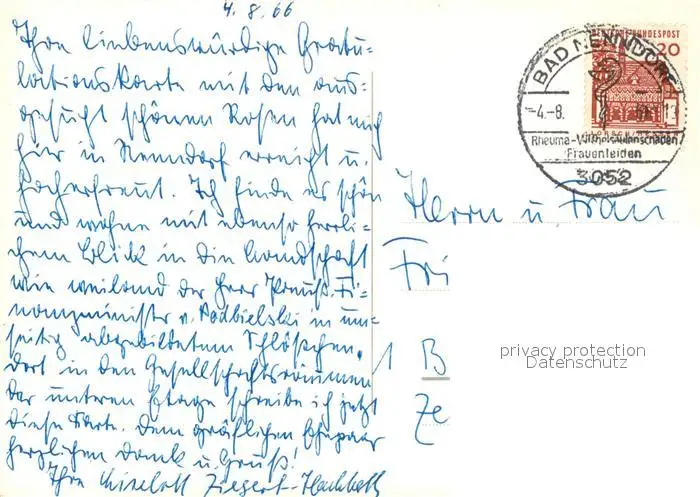 4.8.66
Ihre liebenswürdige Gratu-
lationskarte mit den aus-
gesucht schönen Rosen hat mich
hier in Nenndorf erreicht u.
hocherfreut. Ich finde es schön
und wohne mit ebenso herrli-
chem Blick in die Landschaft
wie weiland der Herr Preuß. Fi-
nanzminister v. Podbielski in um-
seitig abgebildetem Schlößchen.
Dort in den Gesellschaftsräumen
der unteren Etage schreibe ich jetzt
diese Karte. Dem gräflichen Ehepaar
herzlichen Dank u. Gruß!
Ihre Liselott Ziegert-Hackbarth
DEUTSCHE BUNDESPOST
20
BAD NENNDORF
-4.-8.
13
Rheuma
Frauenleiden
3052
Herrn u. Frau
Fri
1 B
Ze
privacy protection
Datenschutz